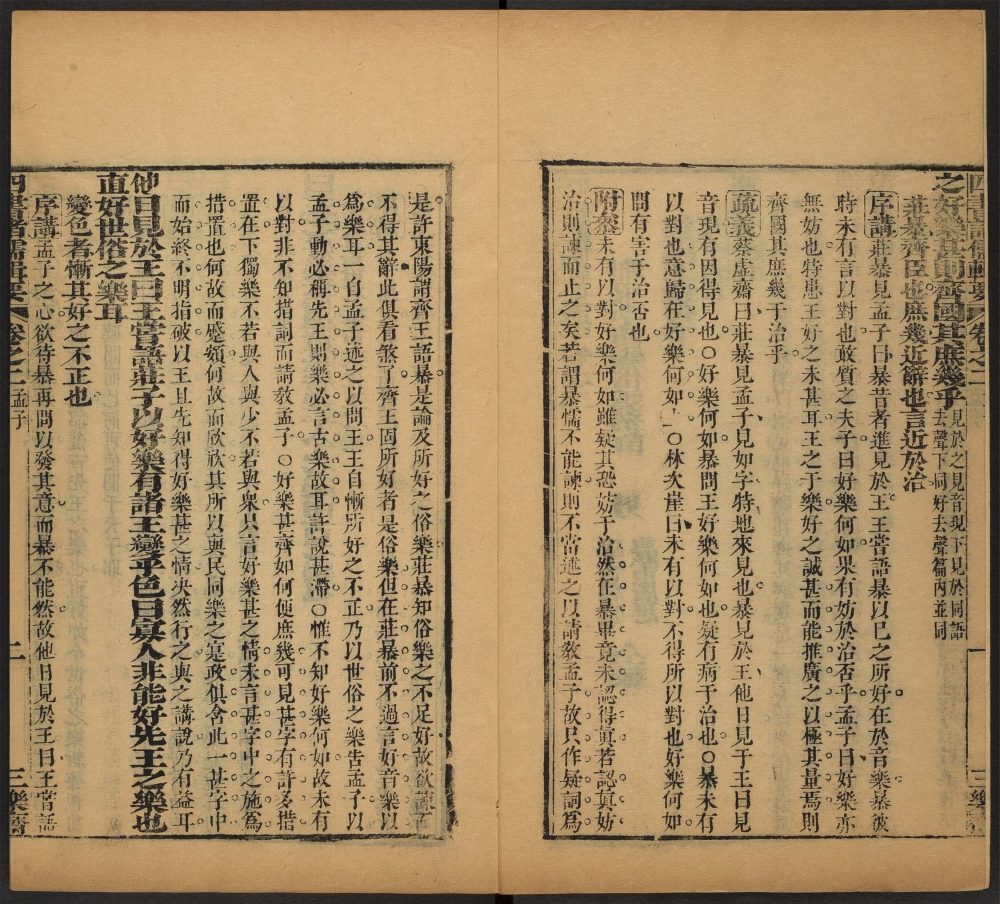 四書諸儒輯要卷之二
三樂齋
之好樂甚則齊國其庶幾乎見於之見音現下見於同語去聲下同好去聲篇內並同
莊暴齊臣也庶幾近辭也言近於治
序講莊暴見孟子曰暴昔者進見於王王嘗語暴以已之所好在於音樂暴彼
時未有言以對也敢質之夫子曰好樂何如果有妨於治否乎孟子曰好樂亦
無妨也特患王好之未甚耳王之于樂好之誠甚而能推廣之以極其量焉則
齊國其庶幾于治乎
疏義蔡虛齋曰莊暴見孟子見如字特地來見也暴見於王他日見于王曰見
音現有因得見也○好樂何如暴問王好樂何如也疑有病于治也○暴未有
以對也意歸在好樂何如○林次崖曰未有以對不得所以對也好樂何如
問有害于治否也
附叅未有以對好樂何如雖疑其恐妨于治然在暴畢竟未認得眞若認眞妨
治則諫而止之矣若謂暴懦不能諫則不當述之以請教孟子故只作疑詞爲
是許東陽謂齊王語暴是論及所好之俗樂莊暴知俗樂之不足好故欲諫而
不得其辭此俱看煞了齊王固所好者是俗樂但在莊暴前不過言好音樂以
爲樂耳一自孟子述之以問王王自慚所好之不正乃以世俗之樂告孟子以
孟子動必稱先王則樂必言古樂故耳許說甚滯○惟不知好樂何如故未有
以對非不知措詞而請教孟子○好樂甚齊如何便庶幾可見甚字有許多措
置在下獨樂不若與人與少不若與衆只言好樂甚之情未言甚字中之施爲
措置也何故而蹙頞何故而欣欣其所以與民同樂之寔政俱含此一甚字中
而始終不明指破以王且先知得好樂甚之情决然行之與之講說乃有益耳
他日見於王曰王嘗語莊子以好樂有諸王變乎色曰寡人非能好先王之樂也
直好世俗之樂耳
變色者慚其好之不正也
序講孟子之心欲待暴再問以發其意而暴不能然故他日見於王曰王嘗語
四書諸儒輯要卷之二孟子
二
三樂齋